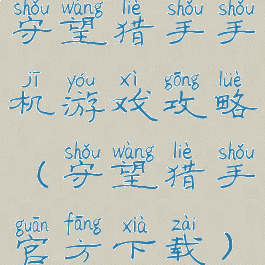 shǒu wàng liè shǒu shǒu
守望猎手手
jī yóu xì gōng lüè
机游戏攻略
shǒu wàng liè shǒu
（守望猎手
guān fāng xià zài
官方下载）